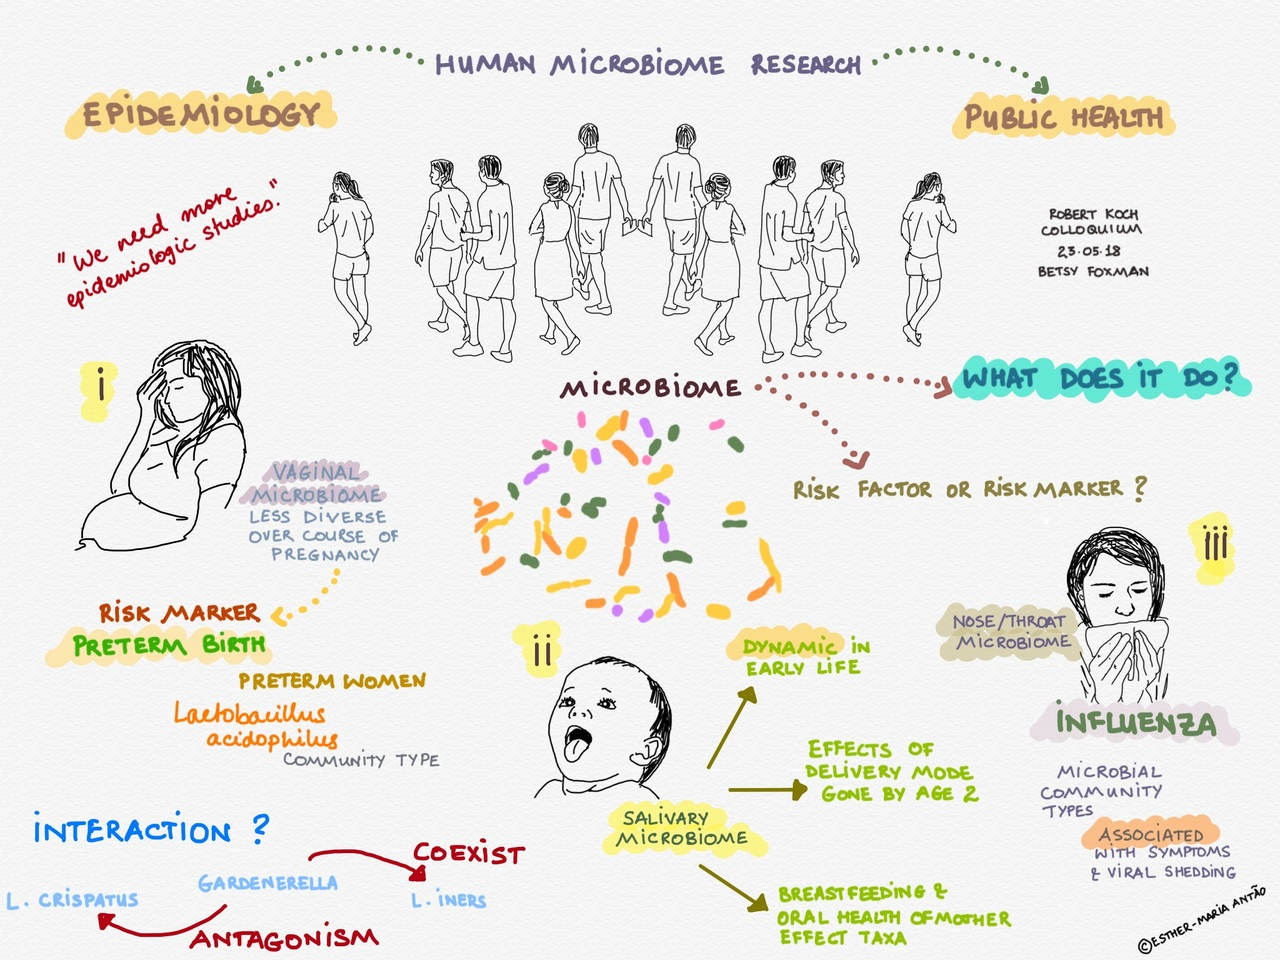 HUMAN MICROBIOME RESEARCH
EPIDEMIOLOGY
PUBLIC HEALTH
"We need more
epidemiologic studies."
ROBERT KOCH
COLLOQUIUM
23.05.18
BETSY FOXMAN
MICROBIOME
WHAT DOES IT DO?
RISK FACTOR OR RISK MARKER?
i
VAGINAL
MICROBIOME
LESS DIVERSE
OVER COURSE OF
PREGNANCY
RISK MARKER
PRETERM BIRTH
PRETERM WOMEN
Lactobacillus
acidophilus
COMMUNITY TYPE
INTERACTION ?
COEXIST
GARDENERELLA
L. CRISPATUS
L. INERS
ANTAGONISM
ii
SALIVARY
MICROBIOME
DYNAMIC IN
EARLY LIFE
EFFECTS OF
DELIVERY MODE
GONE BY AGE 2
BREASTFEEDING &
ORAL HEALTH OF MOTHER
EFFECT TAXA
iii
NOSE/THROAT
MICROBIOME
INFLUENZA
MICROBIAL
COMMUNITY
TYPES
ASSOCIATED
WITH SYMPTOMS
& VIRAL SHEDDING
©ESTHER-MARIA ANTÃO